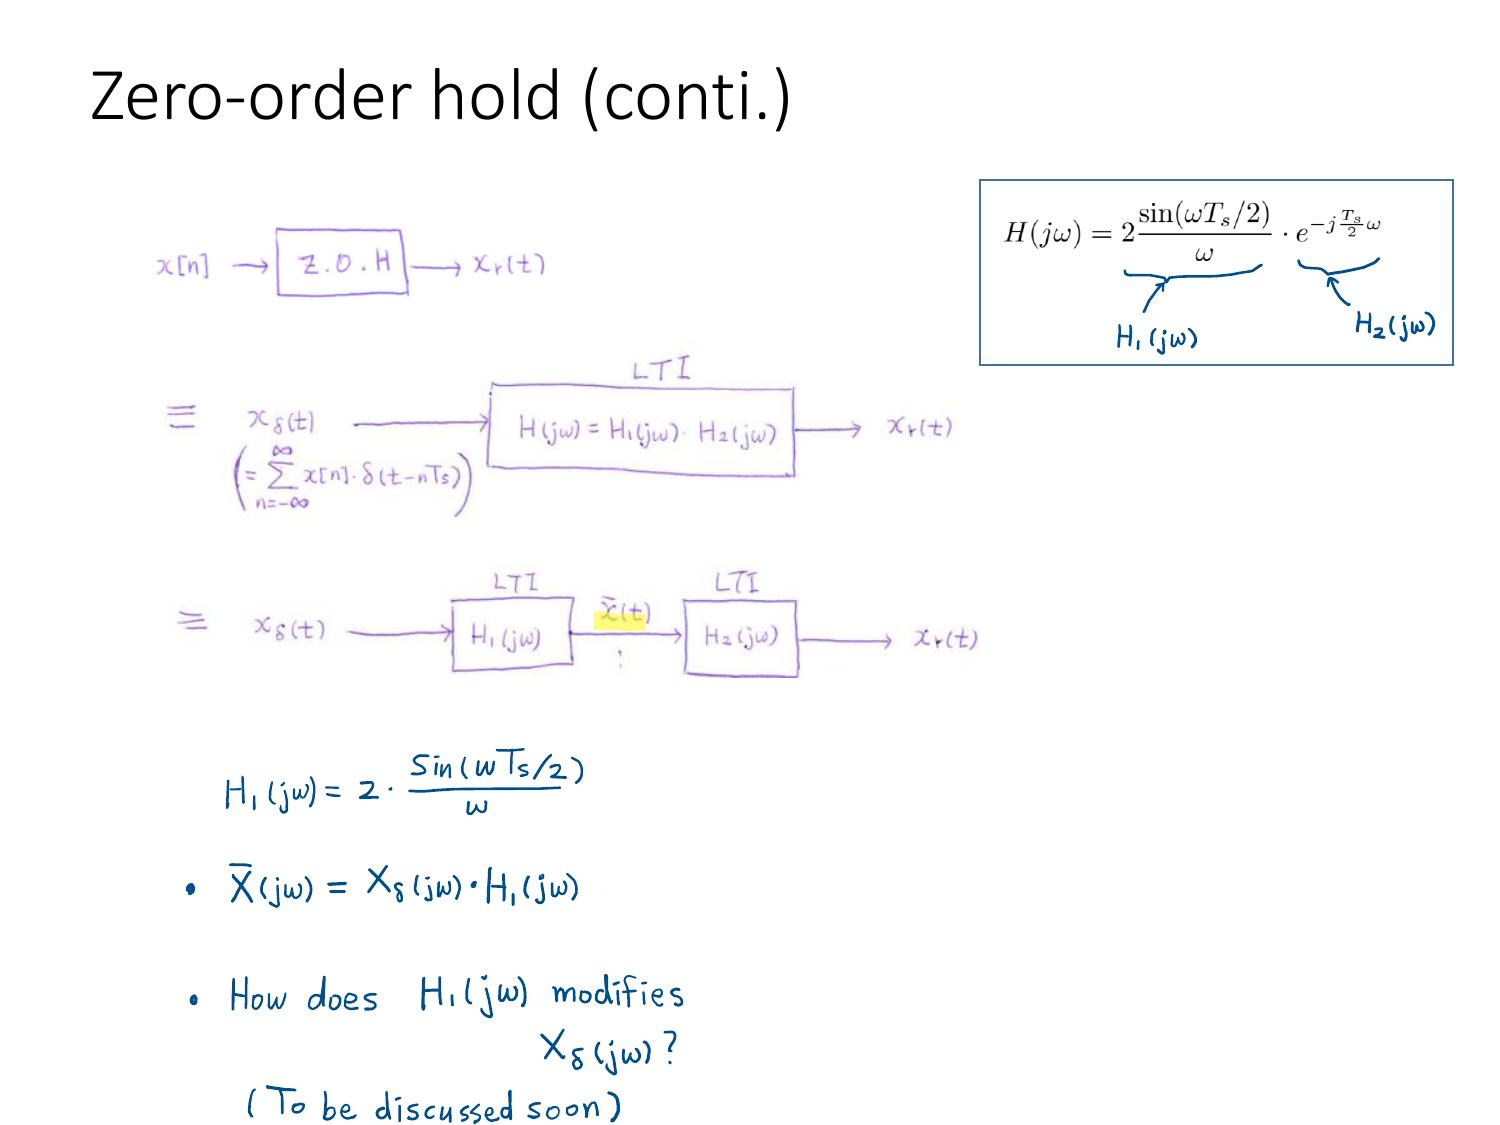 Zero-order hold (conti.)
H(jω) = 2 sin(ωTₛ/2)/ω · e^{-j Tₛ/2 ω}
H₁(jω)
H₂(jω)
x[n] → Z.O.H → xᵣ(t)
LTI
≡ x_δ(t) → H(jω) = H₁(jω) · H₂(jω) → xᵣ(t)
(= ∑_{n=-∞}^{∞} x[n]·δ(t-nTs))
LTI LTI
≡ x_δ(t) → H₁(jω) x̄(t) → H₂(jω) → xᵣ(t)
H₁(jω) = 2 · Sin(ωTs/2)/ω
• X̄(jω) = X_δ(jω)·H₁(jω)
• How does H₁(jω) modifies
X_δ(jω)?
(To be discussed soon)